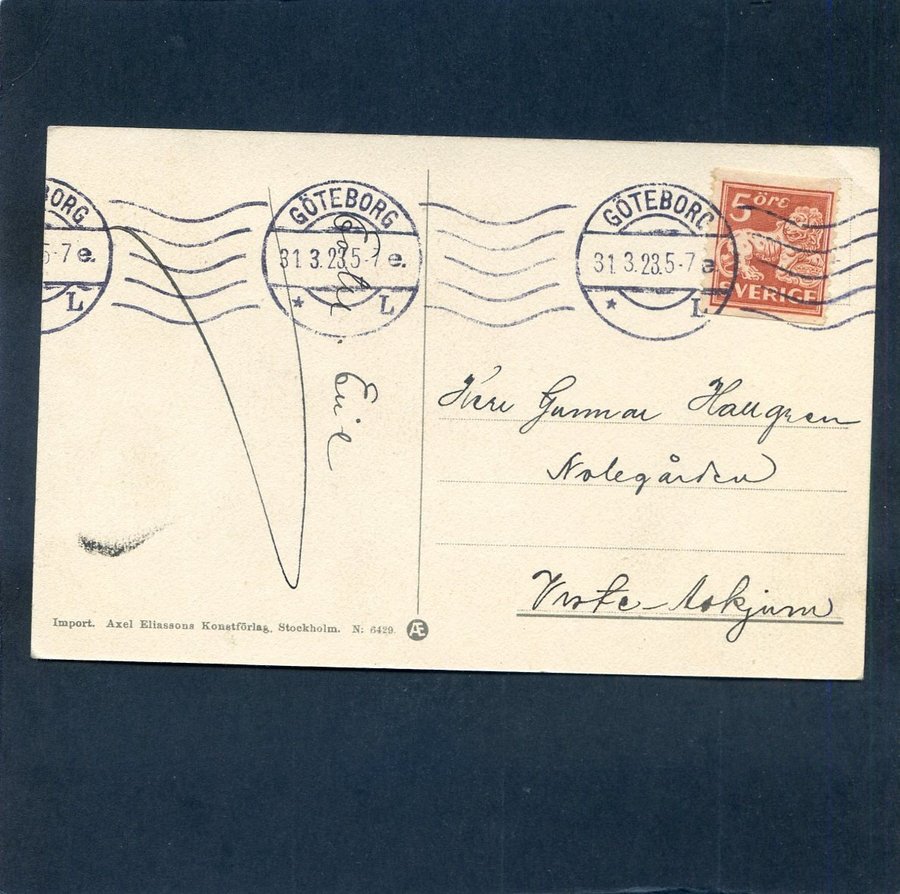 BORG
5-7 e.
L
GÖTEBORG
31 3.23.5-7 e.
* L
GÖTEBORG
31 3.23.5-7 e
* L
5 ÖRE
SVERIGE
Emil
Herr Gunnar Hallgren
Nolegården
Askjum
Import. Axel Eliassons Konstförlag. Stockholm. N: 6429. Æ